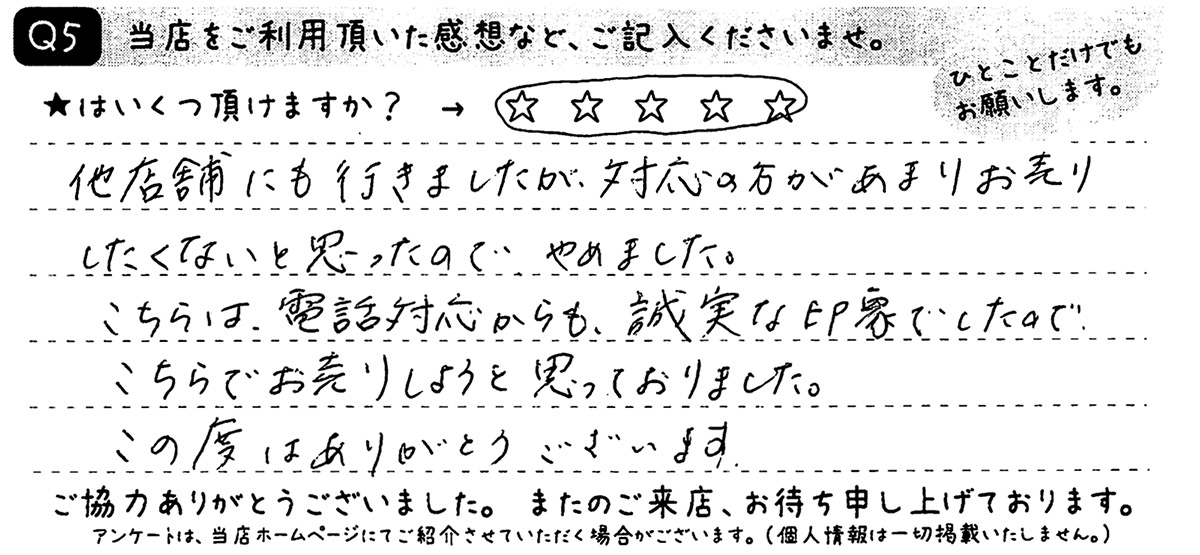 Q5 当店をご利用頂いた感想など、ご記入くださいませ。
ひとことだけでも
お願いします。
★はいくつ頂けますか? → ☆ ☆ ☆ ☆ ☆
他店舗にも行きましたが、対応の方があまりお売り
したくないと思ったので やめました。
こちらは、電話対応からも、誠実な印象でしたので、
こちらでお売りしようと思っておりました。
この度はありがとうございます
ご協力ありがとうございました。 またのご来店、お待ち申し上げております。
アンケートは、当店ホームページにてご紹介させていただく場合がございます。(個人情報は一切掲載いたしません。)